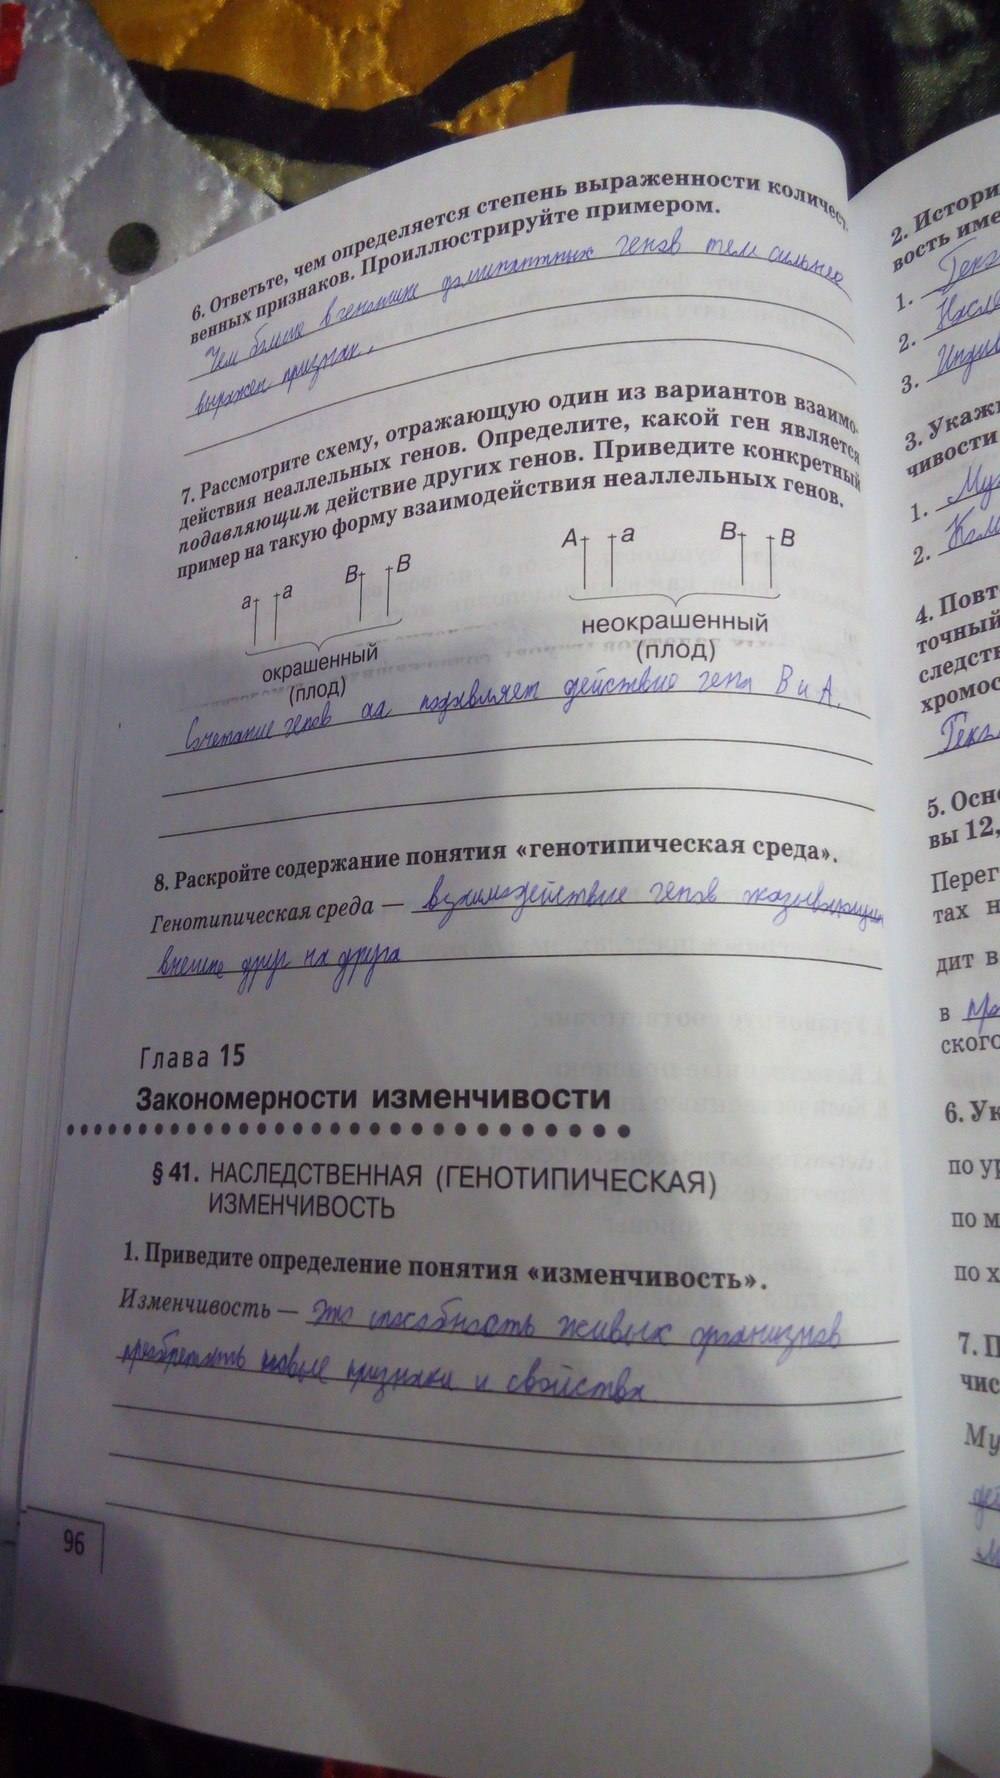 6. Ответьте, чем определяется степень выраженности количест-
венных признаков. Проиллюстрируйте примером.
Чем больше в генотипе доминантных генов тем сильнее
выражен признак.
7. Рассмотрите схему, отражающую один из вариантов взаимо-
действия неаллельных генов. Определите, какой ген является
подавляющим действие других генов. Приведите конкретный
пример на такую форму взаимодействия неаллельных генов.
a a B B
окрашенный
(плод)
A a B B
неокрашенный
(плод)
Сочетание генов аа подавляет действие гена В и А.
8. Раскройте содержание понятия «генотипическая среда».
Генотипическая среда — взаимодействие генов
друг на друга
Глава 15
Закономерности изменчивости
§ 41. НАСЛЕДСТВЕННАЯ (ГЕНОТИПИЧЕСКАЯ)
ИЗМЕНЧИВОСТЬ
1. Приведите определение понятия «изменчивость».
Изменчивость — это способность живых организмов
приобретать новые признаки и свойства
96
2. Истори
вость име
1.
2. Насле
3. Индив
3. Укажи
чивости
1. Му
2. Ком
4. Повт
точный
следств
хромос
5. Осно
вы 12,
Перег
тах н
дит в
в
ского
6. Ук
по ур
по м
по х
7. П
чис
Му